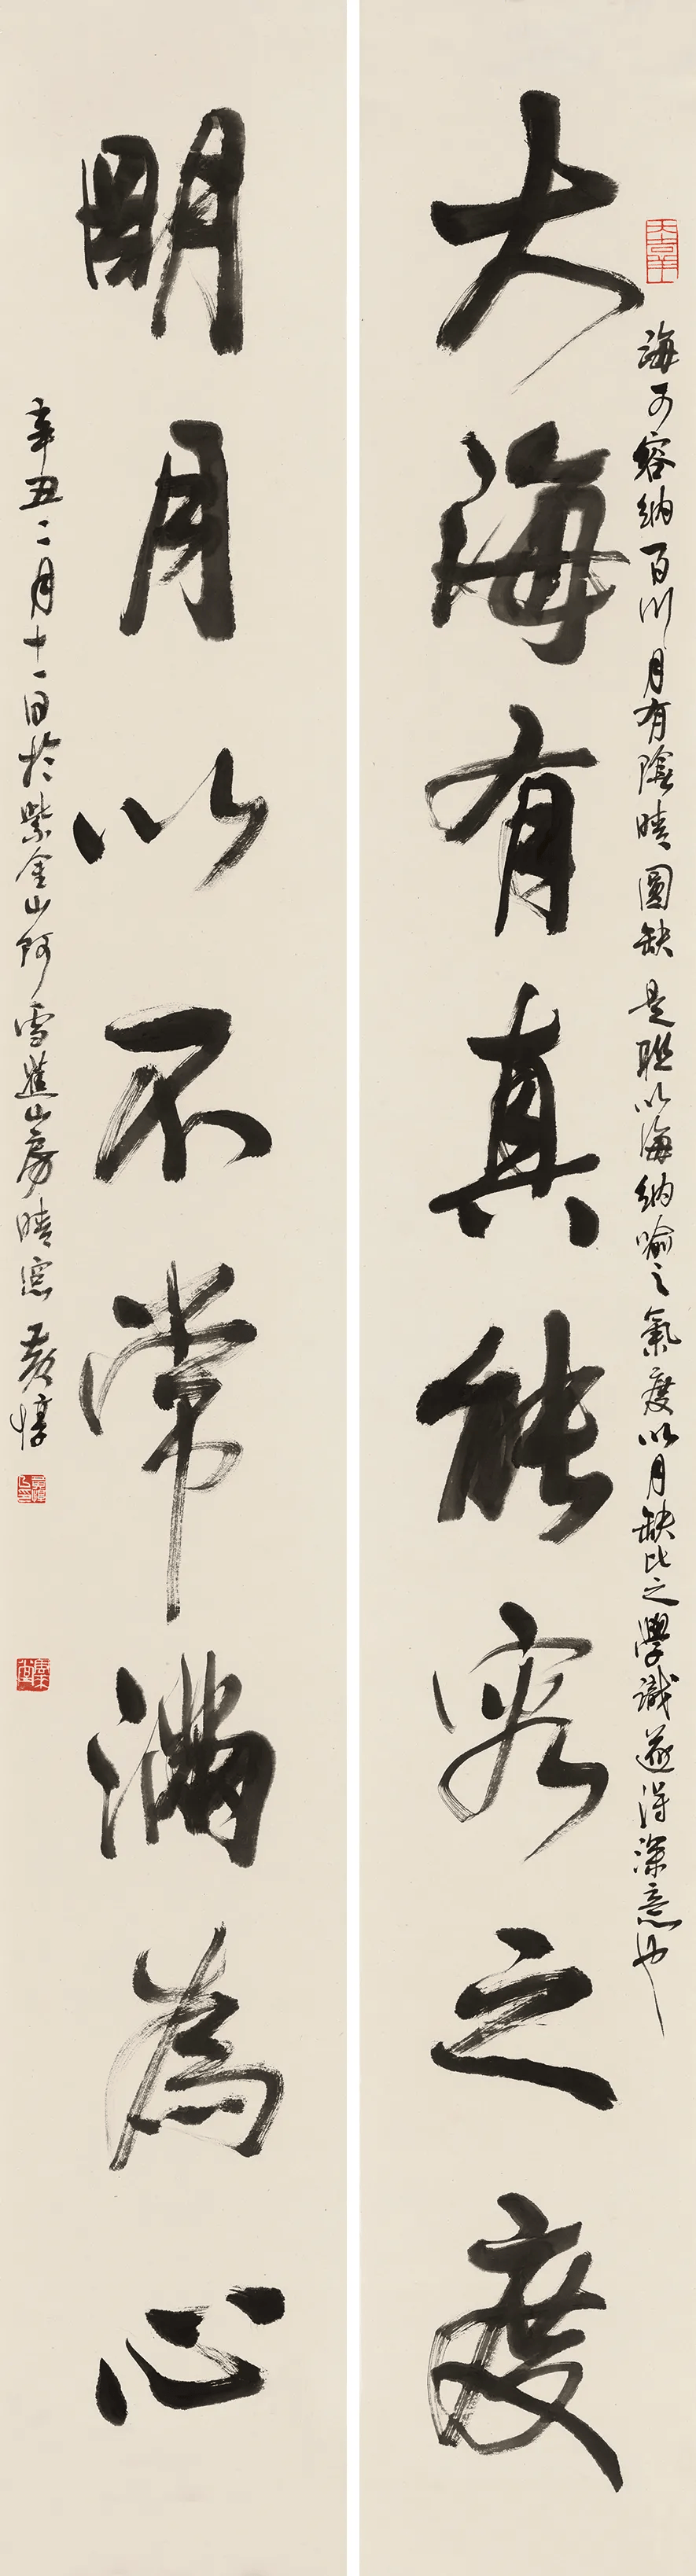 大海有真能容之度
海可容纳百川月有陰晴圓缺是聯以海纳喻之氣度以月缺比之學識遂得深意也
明月以不常滿為心
辛丑二月十一日於紫金山阿雪蕉山房晴窓 黃惇